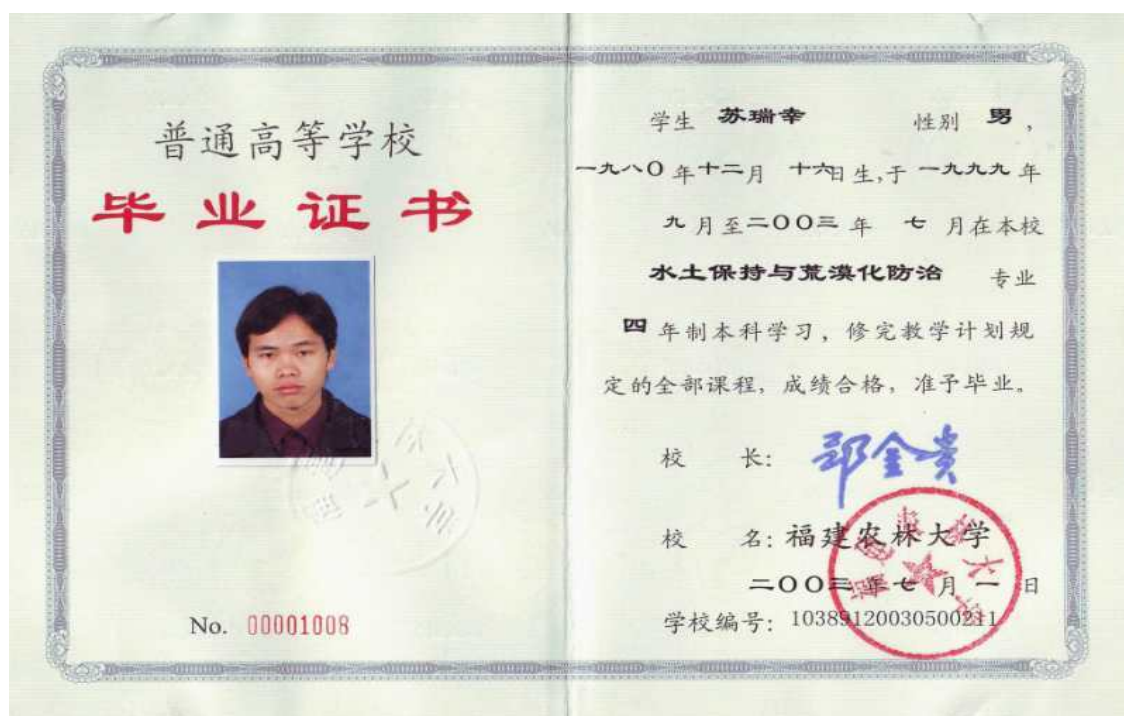 普通高等学校
毕业证书
No. 00001008
学生 苏瑞幸 性别 男，
一九八〇年十二月 十六日生,于 一九九九 年
九月至二〇〇三 年 七 月在本校
水土保持与荒漠化防治 专业
四 年制本科学习，修完教学计划规
定的全部课程，成绩合格，准予毕业。
校 长：郑金贵
校 名：福建农林大学
二〇〇三年七月一日
学校编号：10389120030500211
福建农林大学